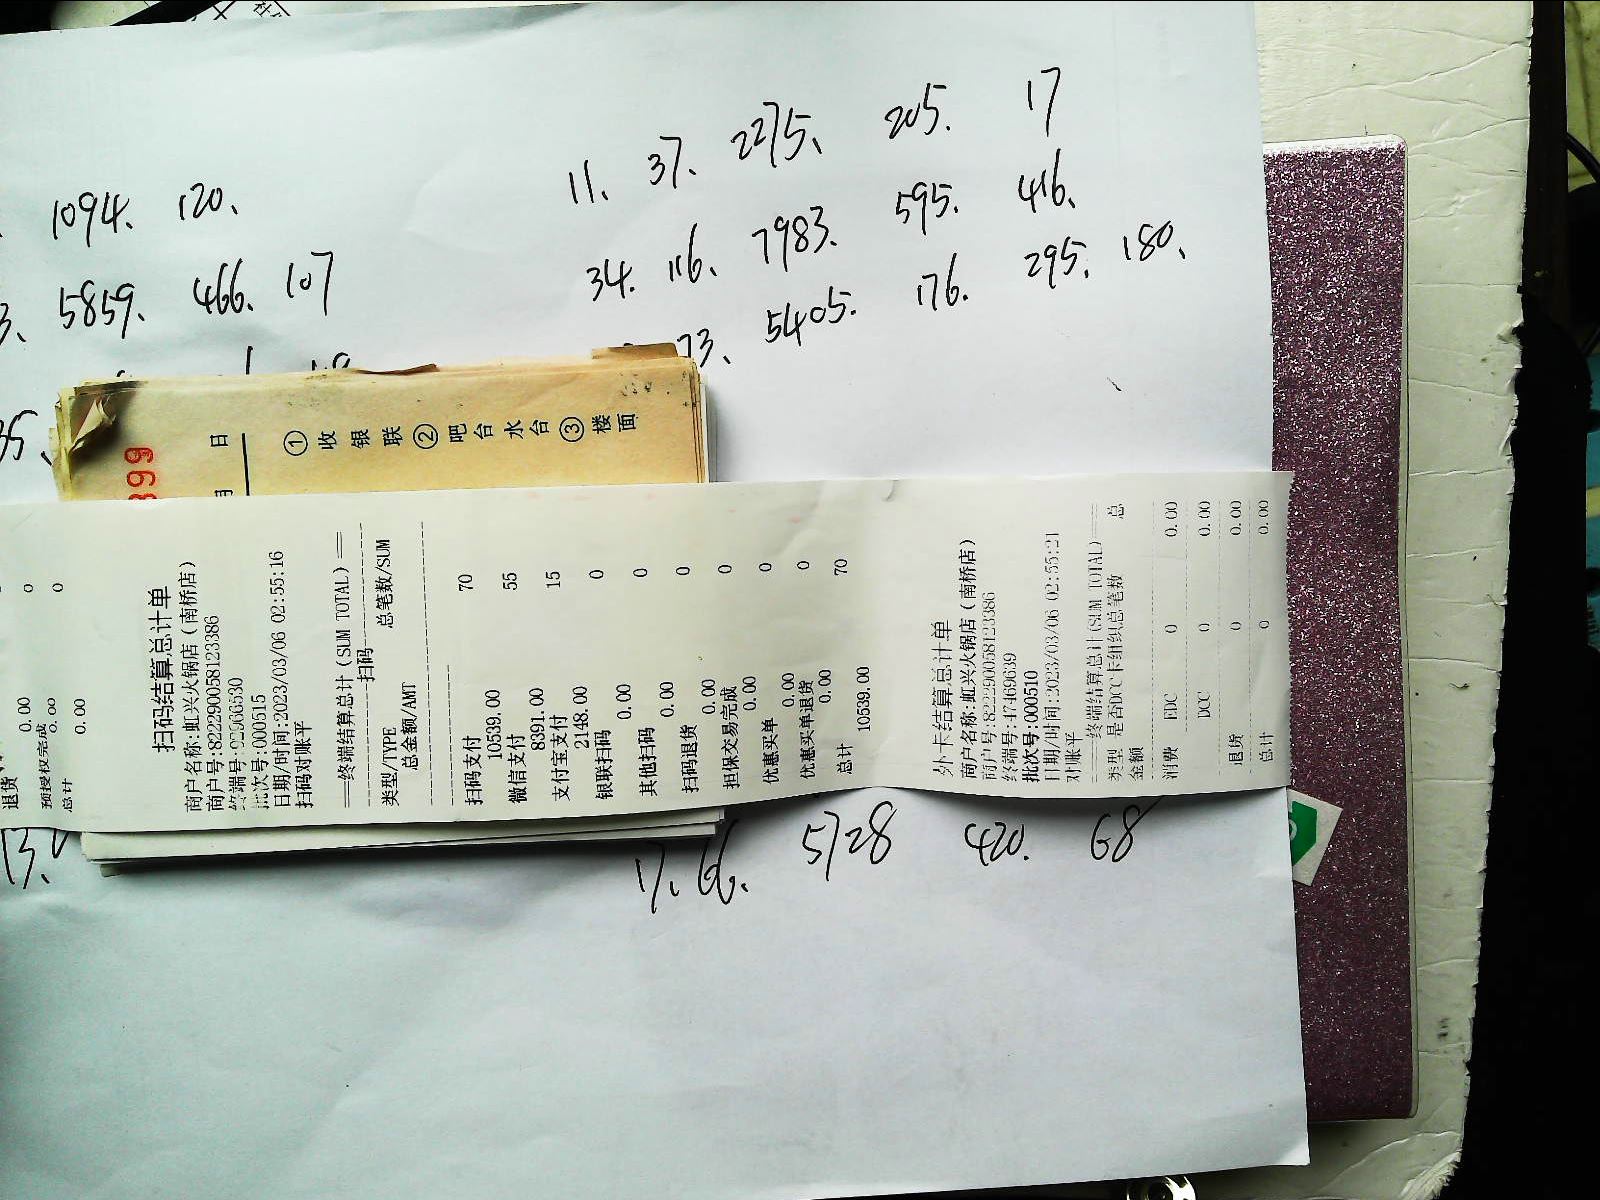 1094. 120.
5859. 466. 107
11. 37. 2275. 205. 17
34. 116. 7983. 595. 416.
73. 5405. 176. 295. 180.
35.
899
月 日
①收银联②吧台水台③楼面
0
退货 0.00 0
预授权完成 0.00
总计 0.00 0
扫码结算总计单
商户名称:虹兴火锅店(南桥店)
商户号:822290058123386
终端号:92966530
批次号:000515
日期/时间:2023/03/06 02:55:16
扫码对账平
===终端结算总计(SUM TOTAL)===
扫码
类型/TYPE 总笔数/SUM
总金额/AMT
扫码支付 70
10539.00
微信支付 55
8391.00
支付宝支付 15
2148.00
银联扫码 0
0.00
其他扫码 0
0.00
扫码退货 0
0.00
担保交易完成 0
0.00
优惠买单 0
0.00
优惠买单退货 0
0.00
总计 70
10539.00
外卡结算总计单
商户名称:虹兴火锅店(南桥店)
商户号:822290058123386
终端号:47469639
批次号:000510
日期/时间:2023/03/06 02:55:21
对账平
===终端结算总计(SUM TOTAL)===
类型 是否DCC卡组织总笔数 总
金额
消费 EDC 0 0.00
DCC 0 0.00
退货 0 0.00
总计 0 0.00
13.
17. 66. 5728 420. 68